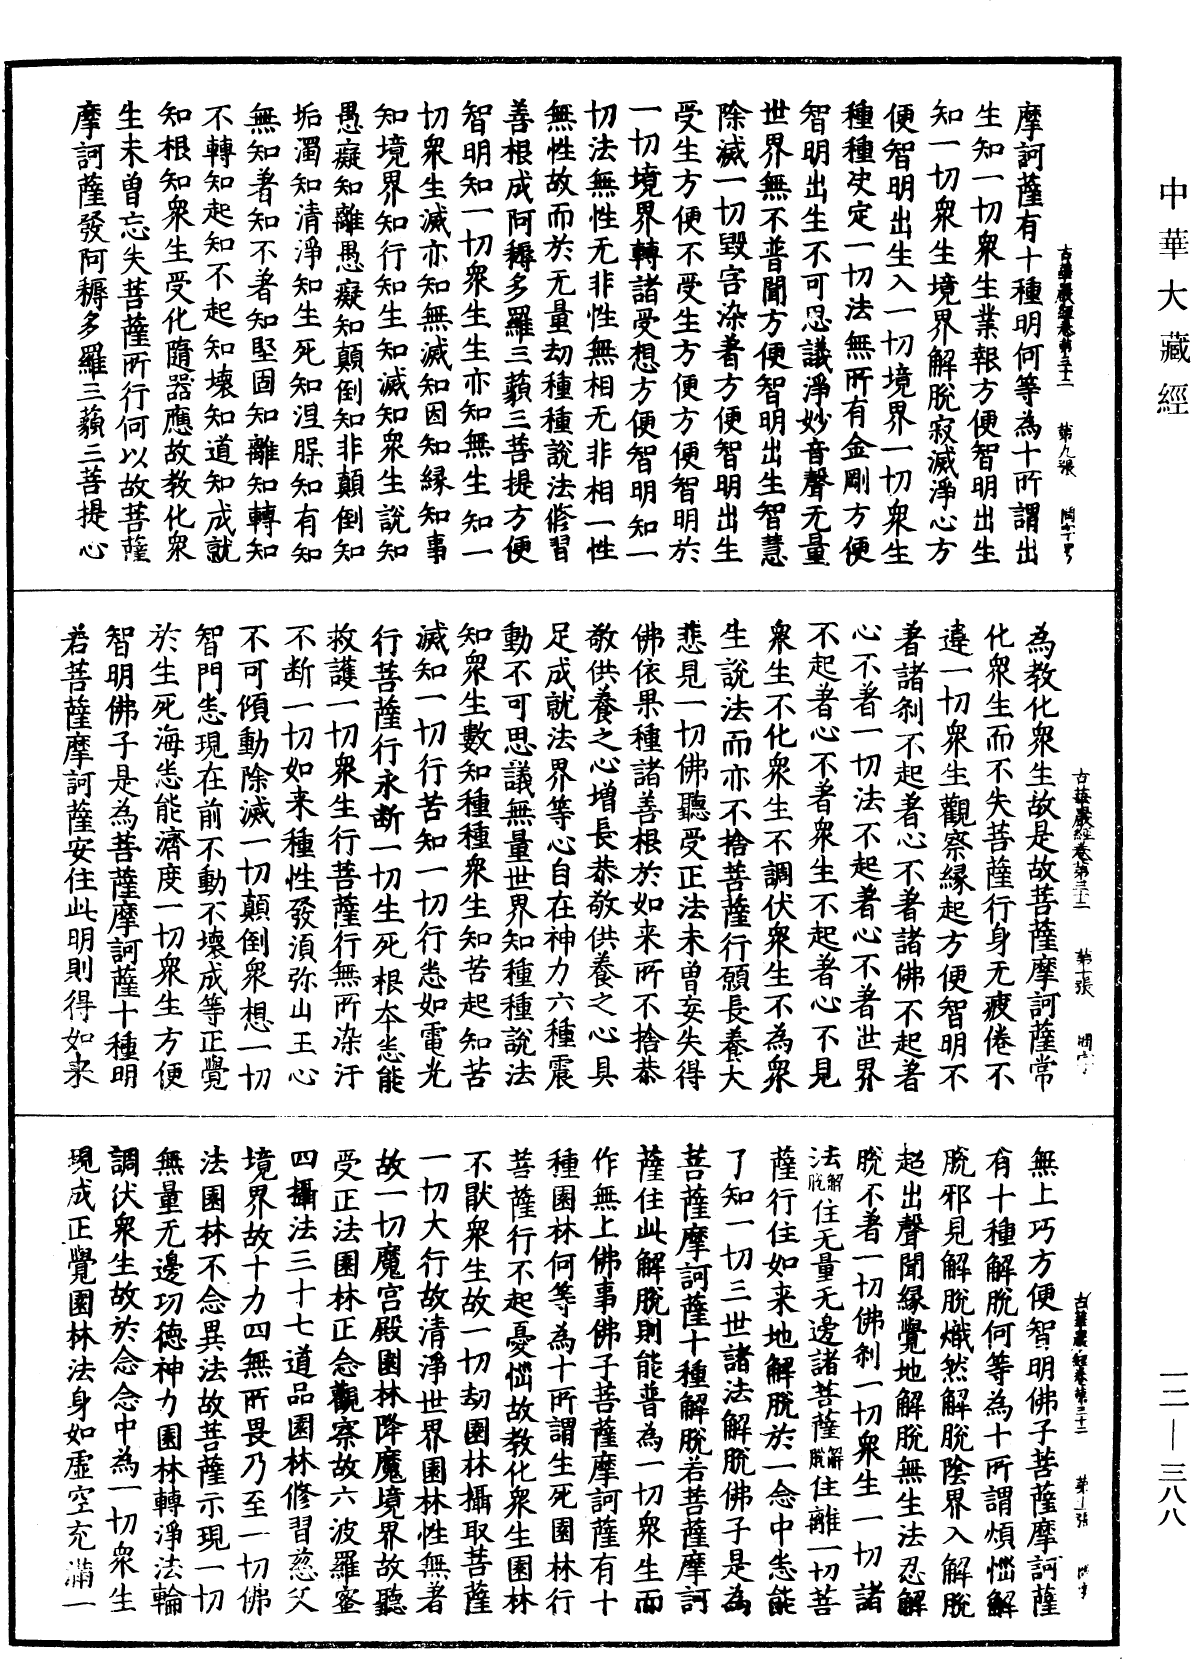 中華大藏經
古華嚴經卷第三十二 第九張
摩訶薩有十種明何等為十所謂出
生知一切衆生業報方便智明出生
知一切衆生境界解脫寂滅淨心方
便智明出生入一切境界一切衆生
種種決定一切法無所有金剛方便
智明出生不可思議淨妙音聲无量
世界無不普聞方便智明出生智慧
除滅一切毀害染著方便智明出生
受生方便不受生方便方便智明於
一切境界轉諸受想方便智明知一
切法無性无非性無相无非相一性
無性故而於无量劫種種說法修習
善根成阿耨多羅三藐三菩提方便
智明知一切衆生生亦知無生知一
切衆生滅亦知無滅知因知緣知事
知境界知行知生知滅知衆生說知
愚癡知離愚癡知顛倒知非顛倒知
垢濁知清淨知生死知涅槃知有知
無知著知不著知堅固知離知轉知
不轉知起知不起知壞知道知成就
知根知衆生受化隨器應故教化衆
生未曾忘失菩薩所行何以故菩薩
摩訶薩發阿耨多羅三藐三菩提心
古華嚴經卷第三十二 第十張
為教化衆生故是故菩薩摩訶薩常
化衆生而不失菩薩行身无疲倦不
違一切衆生觀察緣起方便智明不
著諸刹不起著心不著諸佛不起著
心不著一切法不起著心不著世界
不起著心不著衆生不起著心不見
衆生不化衆生不調伏衆生不為衆
生說法而亦不捨菩薩行願長養大
悲見一切佛聽受正法未曾妄失得
佛依果種諸善根於如来所不捨恭
敬供養之心增長恭敬供養之心具
足成就法界等心自在神力六種震
動不可思議無量世界知種種說法
知衆生數知種種衆生知苦起知苦
滅知一切行苦知一切行悉如電光
行菩薩行永斷一切生死根本悉能
救護一切衆生行菩薩行無所染汙
不断一切如来種性發須弥山王心
不可傾動除滅一切顛倒衆想一切
智門悉現在前不動不壞成等正覺
於生死海悉能濟度一切衆生方便
智明佛子是為菩薩摩訶薩十種明
若菩薩摩訶薩安住此明則得如来
古華嚴經卷第三十二
無上巧方便智明佛子菩薩摩訶薩
有十種解脫何等為十所謂煩惱解
脫邪見解脫熾然解脫陰界入解脫
超出聲聞緣覺地解脫無生法忍解
脫不著一切佛刹一切衆生一切諸
法解脫住无量无邊諸菩薩解脫住離一切菩
薩行住如来地解脫於一念中悉能
了知一切三世諸法解脫佛子是為
菩薩摩訶薩十種解脫若菩薩摩訶
薩住此解脫則能普為一切衆生而
作無上佛事佛子菩薩摩訶薩有十
種園林何等為十所謂生死園林行
菩薩行不起憂惱故教化衆生園林
不猒衆生故一切劫園林攝取菩薩
一切大行故清淨世界園林性無著
故一切魔宫殿園林降魔境界故聽
受正法園林正念觀察故六波羅蜜
四攝法三十七道品園林修習慈父
境界故十力四無所畏乃至一切佛
法園林不念異法故菩薩示現一切
無量无邊功德神力園林轉淨法輪
調伏衆生故於念念中為一切衆生
現成正覺園林法身如虛空充滿一
一二—三八八